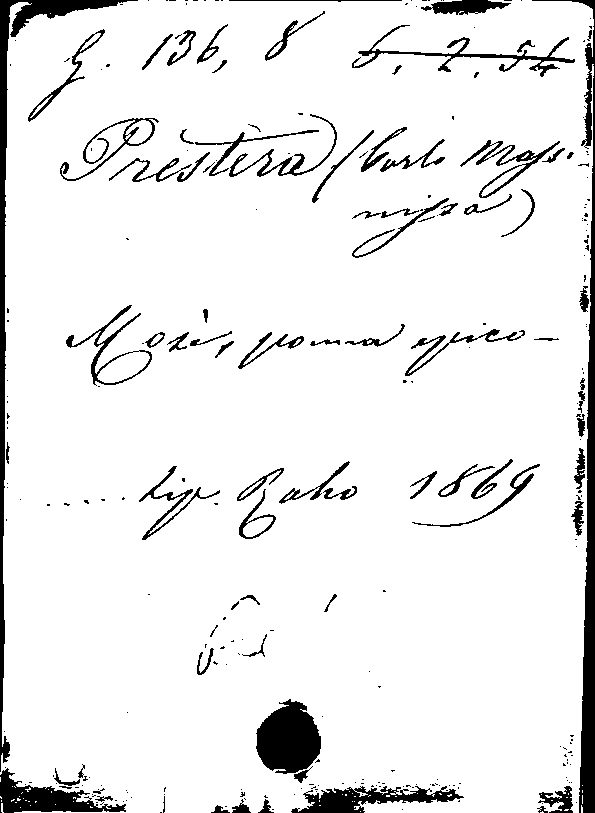 G. 136, 8 6. 2. 54
Prestera (Carlo Mass.
nissa)
Mosè, poema epico –
..... tip. Raho 1869